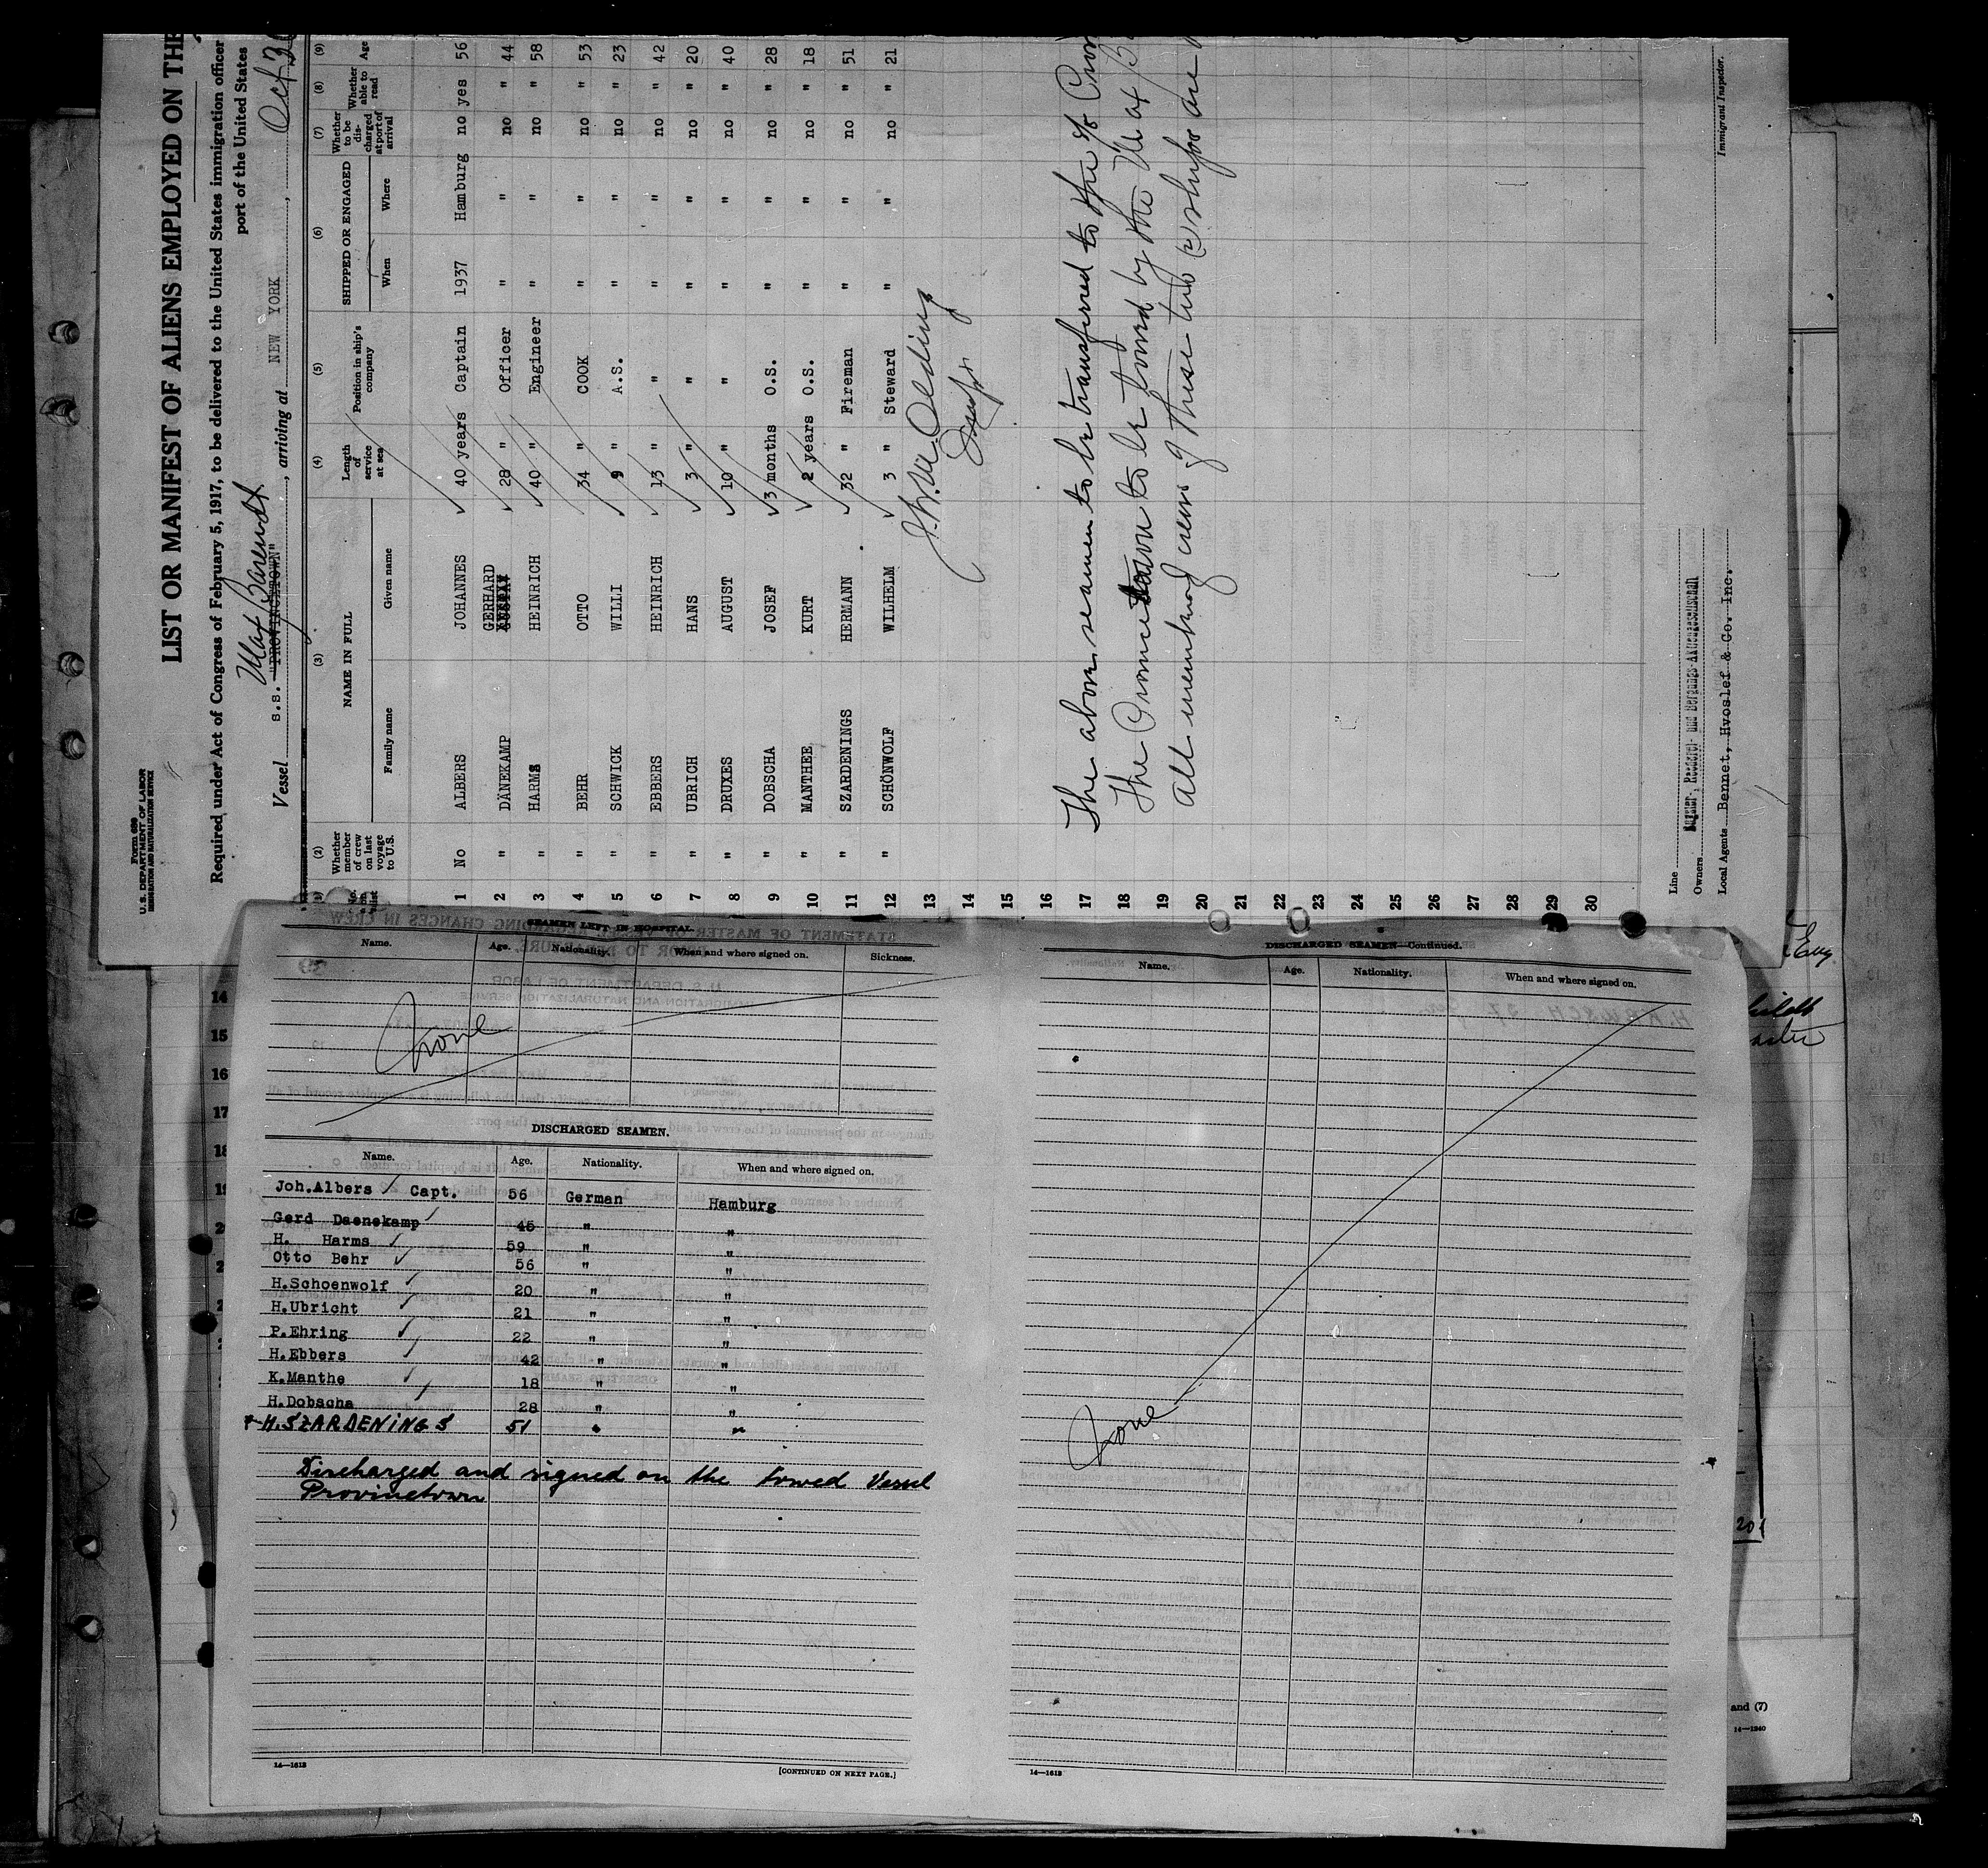 Form 689
U. S. DEPARTMENT OF LABOR
IMMIGRATION AND NATURALIZATION SERVICE
LIST OR MANIFEST OF ALIENS EMPLOYED ON THE
Required under Act of Congress of February 5, 1917, to be delivered to the United States immigration officer
port of the United States
Max Barendt
Vessel s.s. "PROVINCETOWN", arriving at NEW YORK, Oct 30
(2) (3) (4) (5) (6) (7) (8) (9)
Whether member of crew on last voyage to U.S. NAME IN FULL Length of service at sea Position in ship's company SHIPPED OR ENGAGED Whether to be discharged at port of arrival Whether able to read Age
Family name Given name When Where
1 No ALBERS JOHANNES 40 years Captain 1937 Hamburg no yes 56
2 " DÄNEKAMP GERHARD 28 " Officer " " no " 44
3 " HARMS HEINRICH 40 " Engineer " " no " 58
4 " BEHR OTTO 34 " COOK " " no " 53
5 " SCHWICK WILLI 9 " A.S. " " no " 23
6 " EBBERS HEINRICH 13 " " " " no " 42
7 " UBRICH HANS 3 " " " " no " 20
8 " DRUXES AUGUST 10 " " " " no " 40
9 " DOBSCHA JOSEF 3 months O.S. " " no " 28
10 " MANTHEE KURT 2 years O.S. " " no " 18
11 " SZARDENINGS HERMANN 32 " Fireman " " no " 51
12 " SCHÖNWOLF WILHELM 3 " Steward " " no " 21
13
14
15
16
17 The above seamen to be transferred to the
18 The Provincetown to be towed by the
19 All members of crew of these two (2) ships are
20
21
22
23
24
25
26
27
28
29
30
Line
Owners Bugsier-, Reederei- und Bergungs-Aktiengesellschaft
Local Agents Bennet, Hvoslef & Co. Inc.
Immigrant Inspector.
SEAMEN LEFT IN HOSPITAL.
Name. Age. Nationality. When and where signed on. Sickness.
None
DISCHARGED SEAMEN.
Name. Age. Nationality. When and where signed on.
Joh.Albers Capt. 56 German Hamburg
Gerd Daenekamp 45 " "
H. Harms 59 " "
Otto Behr 56 " "
H.Schoenwolf 20 " "
H.Ubricht 21 " "
P.Ehring 22 " "
H.Ebbers 42 " "
K.Manthe 18 " "
H.Dobscha 28 " "
H.SZARDENINGS 51 " "
Discharged and signed on the towed Vessel
Provincetown
14—1613 [CONTINUED ON NEXT PAGE.]
DISCHARGED SEAMEN—Continued.
Name. Age. Nationality. When and where signed on.
None
14—1613
14
15
16
17
and (7)
14—1240